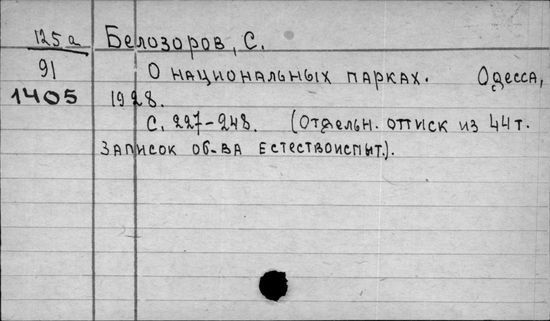 125а Белозоров, С.
91 О национальных парках. Одесса,
1405 1928.
С. 227-248. (Отдельн. оттиск из 44 т.
Записок об-ва естествоиспыт.).